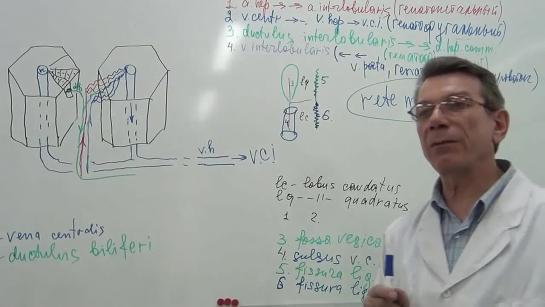 1 a. hep → → a. interlobularis (гепатопетальный)
2 v. centr → → v. hep → v.c.i (гепатофугальный)
3. ductulus interlobularis → → d. hep. comm
4. v. interlobularis (← ←
v. porta,
5
lq
3
4
lc
6
rete
v.h
v.c.i
lc - lobus caudatus
lq - -||- quadratus
1 2.
3. fossa vesica
4. sulcus v.c.
5. fissura lig
6 fissura lig
- vena centralis
- ductulus biliferi